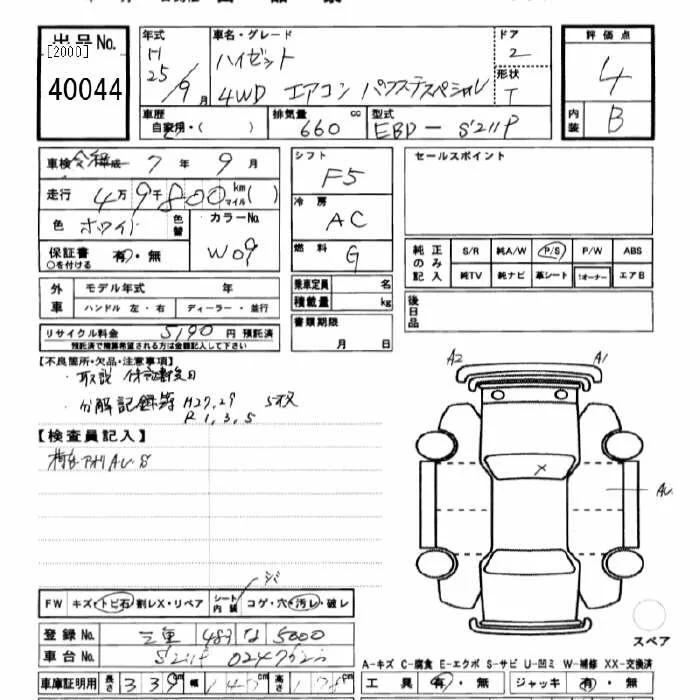 出品番号No.
[2000]
40044
年式
H
25/9月
車名・グレード
ハイゼット
4WD エアコン パワステスペシャル
ドア
2
形状
T
評価点
4
内装
B
車歴
自家用・( )
排気量
660 cc
型式
EBD-S211P
車検 令和 7年 9月
走行 4万9千800km マイル( )
色 ホワイト 色替
カラーNo.
W09
保証書 有・無
○を付ける
シフト
F5
冷房
AC
燃料
G
乗車定員 名
積載量 kg
書類期限
月 日
セールスポイント
純正のみ記入
S/R 純A/W P/S P/W ABS
純TV 純ナビ 革シート 1オーナー エアB
後日品
外車
モデル年式 年
ハンドル 左・右 ディーラー・並行
リサイクル料金 5190 円 預託済
預託済で精算希望される方は金額記入して下さい
【不良箇所・欠品・注意事項】
・取説 保証書後日
・分解記録簿 H27,29 5枚
R1,3,5
【検査員記入】
A2
A1
X
FW キズ・トビ石・割レX・リペア
シート内装 コゲ・穴・汚レ・破レ
登録No. 三重 483 な 5000
車台No.
車庫証明用 長さ 339cm 幅 147cm 高さ 178cm
スペア
A-キズ C-腐食 E-エクボ S-サビ U-凹ミ W-補修 XX-交換済
工具 有・無 ジャッキ 有・無